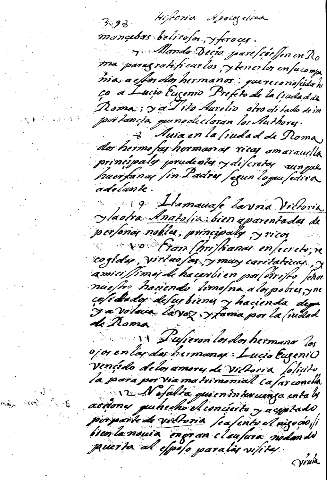 398 Historia Apologetica
mancebos belicosos, y feroces.
7 Mando Decio paresciessen en Ro
ma para gratificarlos, y tenerlos en su compa
nia, a essos dos hermanos: que reconoscido hi
co a Lucio Eugenio Prefeto de la Ciudad de
Roma: y a Tito Aurelio otro dictado de im
portancia que no declaran los Authores.
8 Auia en la Ciudad de Roma
dos hermosas hermanas ricas a marauilla
principales prudentes y discretas aunque
huerfanas sin Padres segun lo que se dira
adelante.
9 Llamauase la una Victoria
y la otra Anatolia: bien aparentadas de
personas nobles, principales y ricos
10 Eran christianas en secreto, re
cogidas, virtuosas, y muy caritatiuas, y
amicissimas de hacer bien por Christo Señor
nuestro haciendo limosna a los pobres, y ne
cesitados de sus bienes y hacienda de que
ya volaua la voz, y fama por la ciudad
de Roma.
11 Pusieron los dos hermanos los
ojos en las dos hermanas: Lucio Eugenio
vencido de los amores de Victoria solicito
la para por via matrimonial casar con ella
12 No falto quien interuenga entre los
acciones pues hecho el concierto y aceptado
por parte de Victoria se asiento el negocio; si
bien la nouia en gran clausura no dando
puerta al esposo para las visitas.